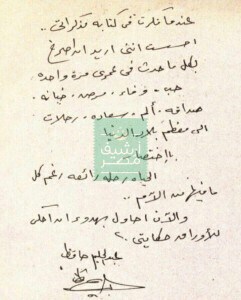 عندما فكرت فى كتابة مذكراتى ..
احسست اننى اريد ان اصرخ
بكل ما حدث فى عمرى مرة واحدة
حب .. وفاء .. مرض .. خيانه .
صداقه .. ألم .. سعاده .. رحلات
الى معظم بلاد الدنيا
باختصار
الحياه رحله رائعه رغم كل
ما فيها من آلام ..
والآن احاول بهدوء ان احكى
للأوراق حكايتى ..
عبد الحليم حافظ
أرشيف
مصر